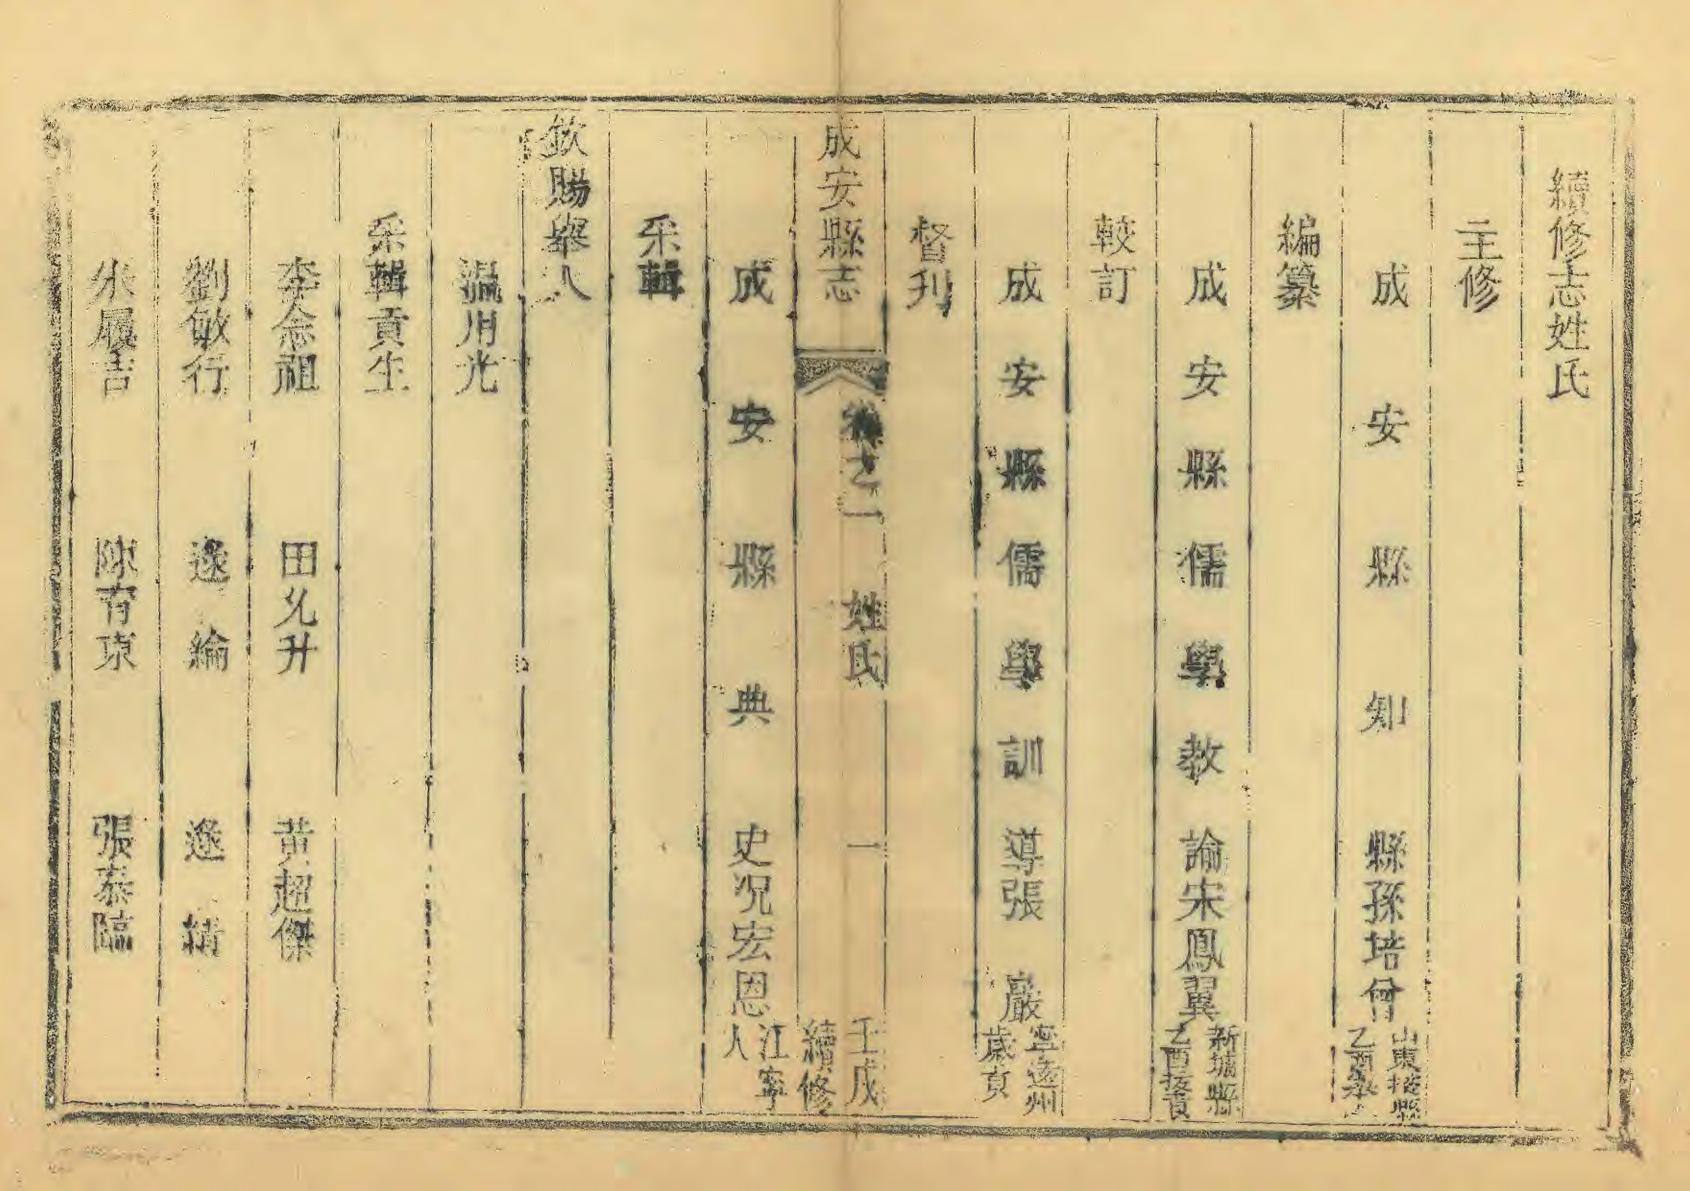 續修志姓氏
主修
成安縣知縣孫培曾山東掖縣乙酉舉人
編纂
成安縣儒學教諭宋鳳翼新城縣乙酉拔貢
較訂
成安縣儒學訓導張巖寧遠州歲貢
督刊
成安縣志 卷之一 姓氏 一 壬戌續修
成安縣典史況宏恩江寧人
采輯
欽賜舉人
溫用光
采輯貢生
李念祖 田允升 黃超傑
劉敏行 逯綸 逯績
朱履吉 陳育東 張泰臨